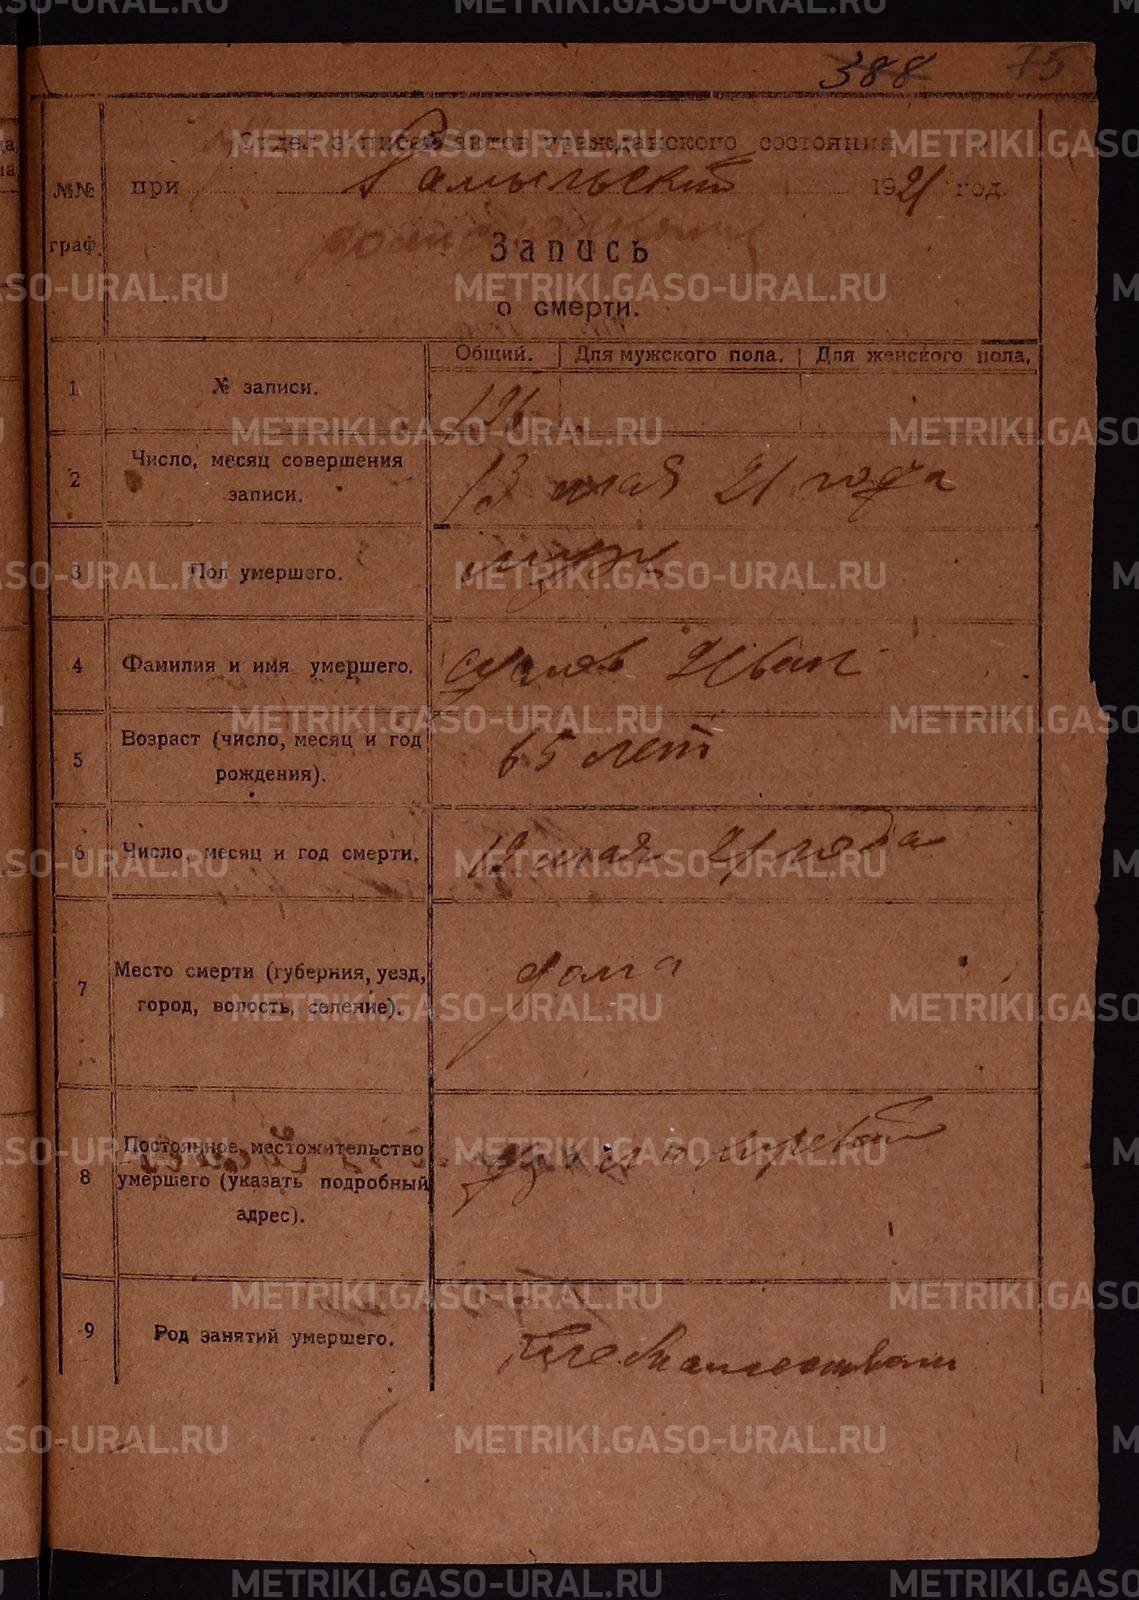 388 75
Отдел записей актов гражданского состояния
при Рамыльский 1921 год.
№№ граф.
Запись
о смерти.
Общий. Для мужского пола. Для женского пола.
1 № записи. 126
2 Число, месяц совершения 13 мая 21 года
записи.
3 Пол умершего. муж
4 Фамилия и имя умершего. Суслов Иван
5 Возраст (число, месяц и год 65 лет
рождения).
6 Число, месяц и год смерти. 12 мая 21 года
7 Место смерти (губерния, уезд, дома
город, волость, селение).
8 Постоянное местожительство
умершего (указать подробный
адрес).
9 Род занятий умершего.
METRIKI.GASO-URAL.RU